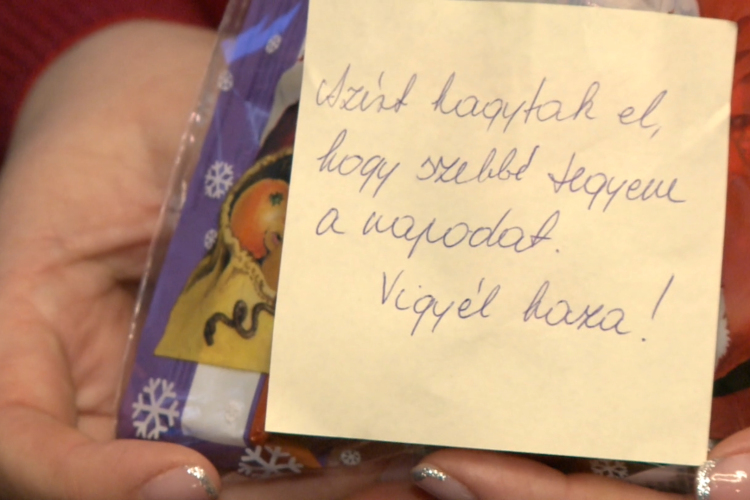 Azért hagytak el,
hogy szebbé tegyem
a napodat.
Vigyél haza!